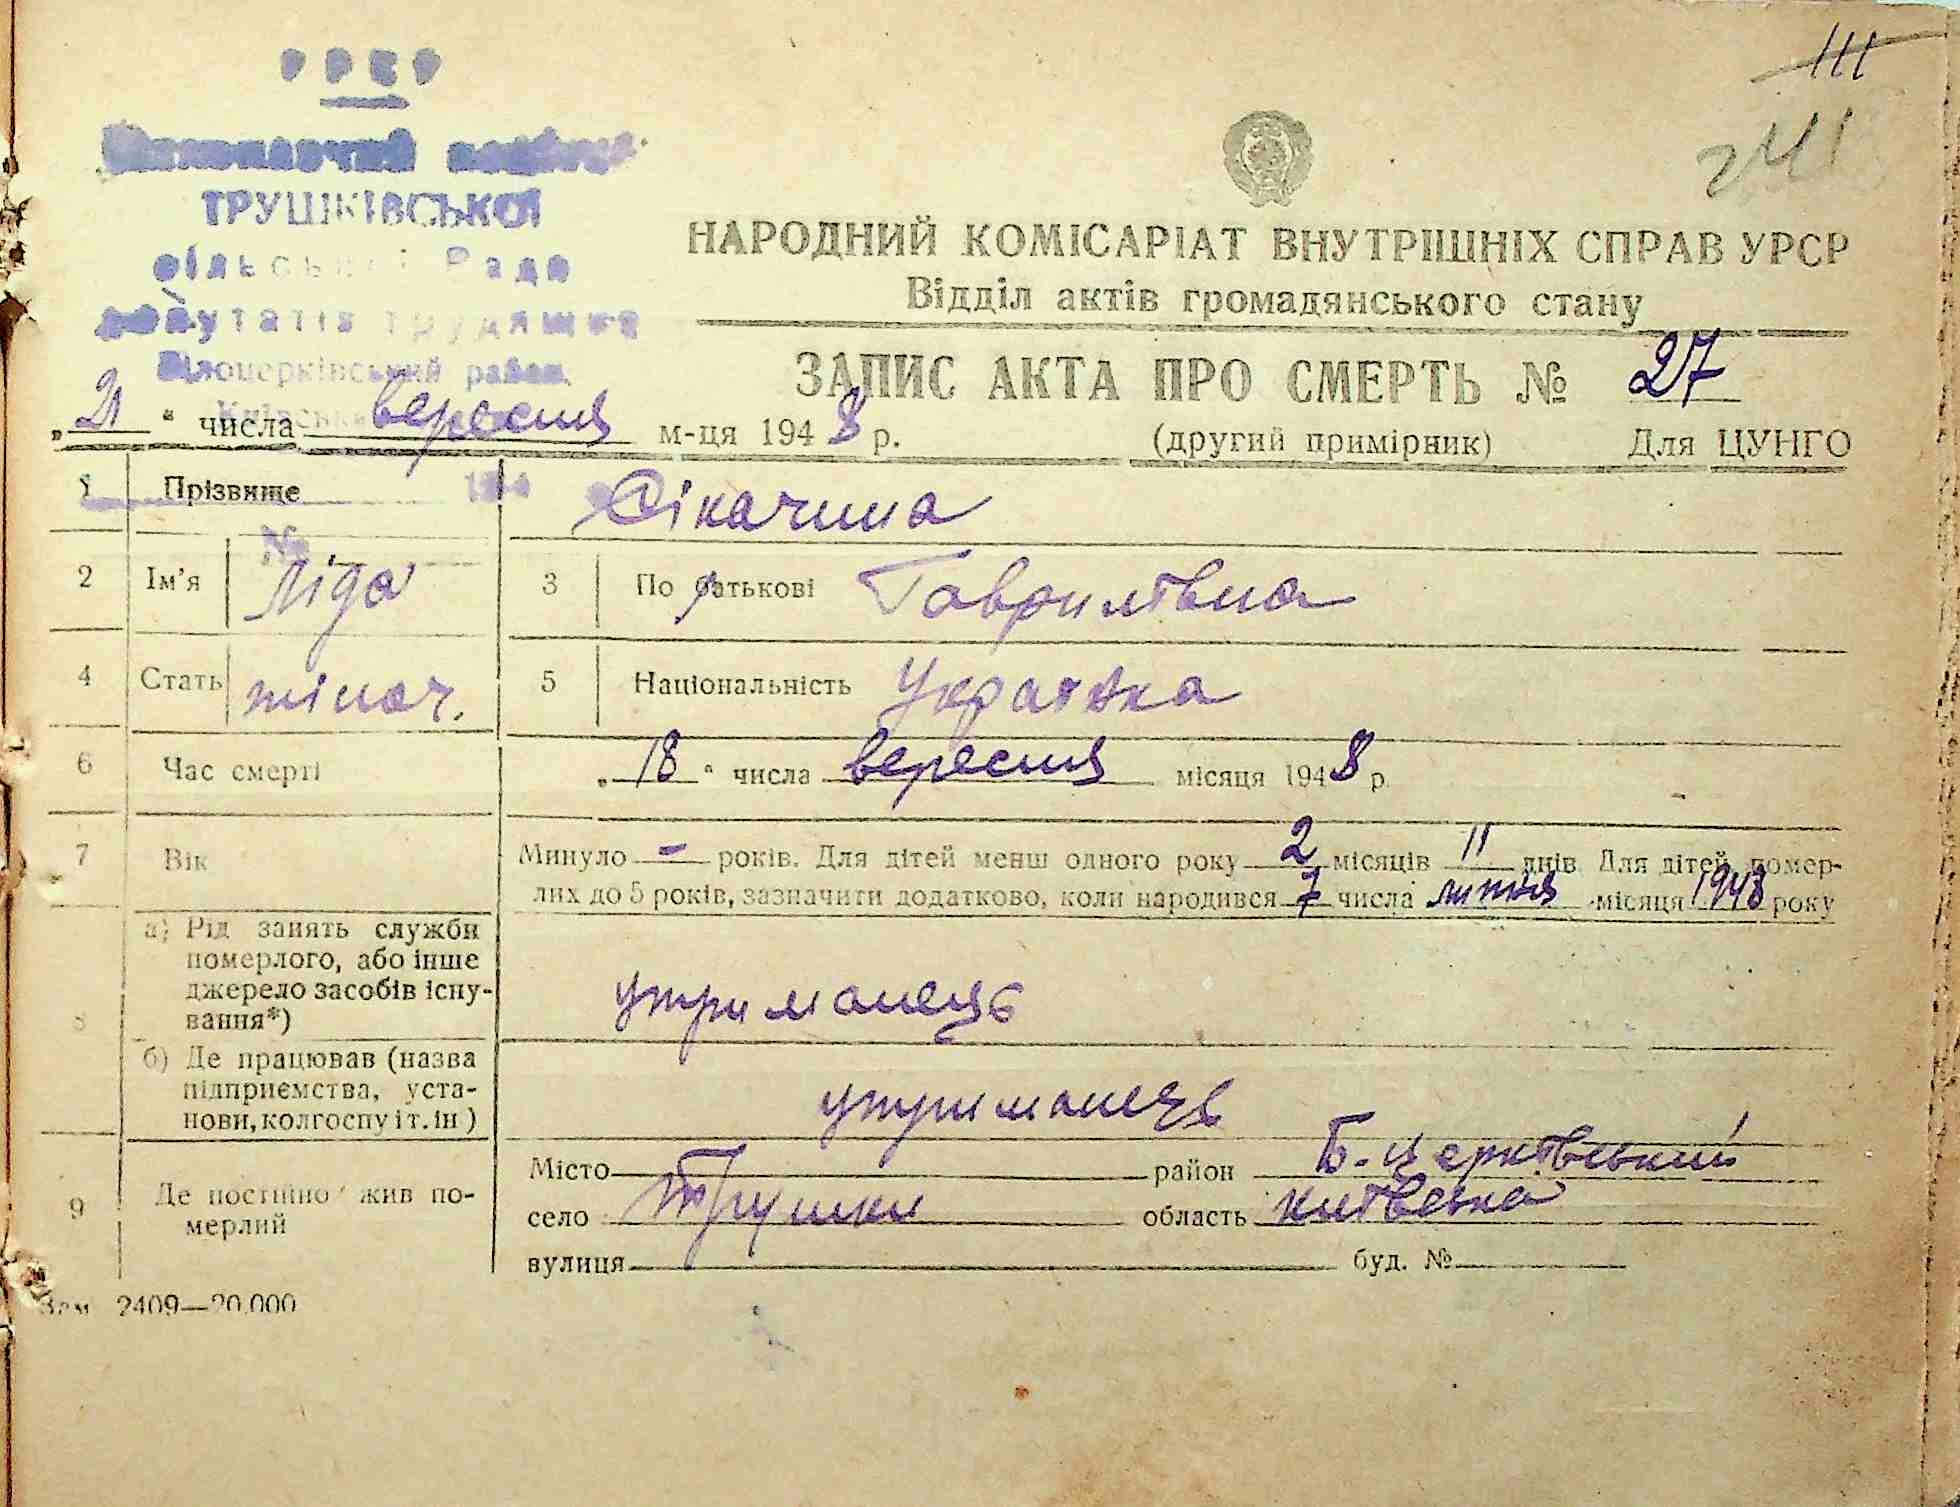 111
241
УРСР
Виконавчий комітет
ТРУШКІВСЬКОЇ
сільської Ради
депутатів трудящих
Білоцерківський район.
Київської
НАРОДНИЙ КОМІСАРІАТ ВНУТРІШНІХ СПРАВ УРСР
Відділ актів громадянського стану
ЗАПИС АКТА ПРО СМЕРТЬ № 27
„21“ числа вересня м-ця 1948 р. (другий примірник) Для ЦУНГО
1 Прізвище Сікачина
№
2 Ім'я Ліда 3 По батькові Гаврилівна
4 Стать жіноч. 5 Національність Українка
6 Час смерті „18“ числа вересня місяця 1948 р.
7 Вік Минуло - років. Для дітей менш одного року 2 місяців 11 днів Для дітей помер-
лих до 5 років, зазначити додатково, коли народився 7 числа липня місяця 1948 року
8 а) Рід занять служби
померлого, або інше
джерело засобів існу-
вання*) утриманець
б) Де працював (назва
підприємства, уста-
нови, колгоспу і т. ін) утриманець
9 Де постійно жив по-
мерлий
Місто район Б-Церківський
село Трушки область Київська
вулиця буд. №
Зам 2409—20.000